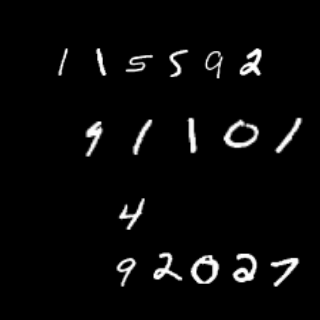 115592
91101
4
92027